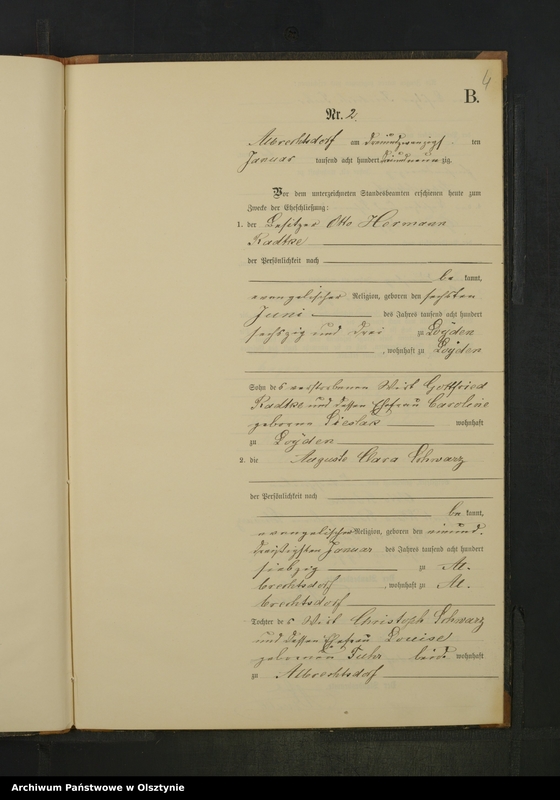 4
B.
Nr. 2.
Albrechtsdorf am dreiundzwanzigsten
Januar tausend acht hundert dreiundneunzig.
Vor dem unterzeichneten Standesbeamten erschienen heute zum
Zwecke der Eheschließung:
1. der Besitzer Otto Hermann
Radtke
der Persönlichkeit nach
be kannt,
evangelischer Religion, geboren den sechsten
Juni des Jahres tausend acht hundert
sechszig und drei zu Loyden
, wohnhaft zu Loyden
Sohn des verstorbenen Wirt Gottfried
Radtke und dessen Ehefrau Caroline
geborene Sieslak wohnhaft
zu Loyden
2. die Auguste Clara Schwarz
der Persönlichkeit nach
be kannt,
evangelischer Religion, geboren den einund-
dreißigsten Januar des Jahres tausend acht hundert
siebzig zu Al-
brechtsdorf, wohnhaft zu Al-
brechtsdorf
Tochter des Wirt Christoph Schwarz
und dessen Ehefrau Louise
geborenen Tuhr beide wohnhaft
zu Albrechtsdorf
Archiwum Państwowe w Olsztynie